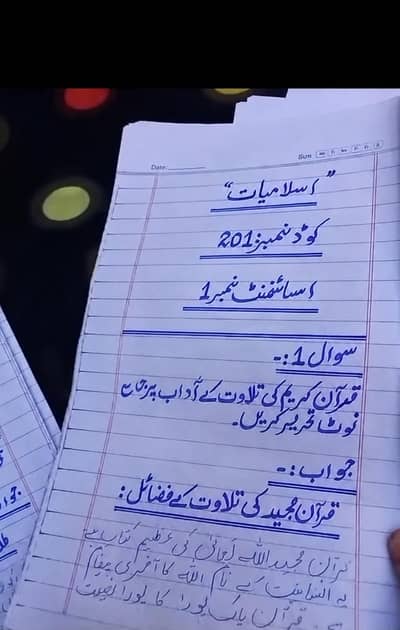 Date:
Sun M T W T F S
"اسلامیات"
کوڈ نمبر: 201
اسائنمنٹ نمبر 1
سوال 1:-
قرآن کریم کی تلاوت کے آداب پر جامع
نوٹ تحریر کریں۔
جواب:-
قرآن مجید کی تلاوت کے فضائل:
قرآن مجید اللہ تعالیٰ کی عظیم کتاب ہے
یہ انسانیت کے نام اللہ کا آخری پیغام
ہے۔ قرآن پاک پورا کا پورا نصیحت